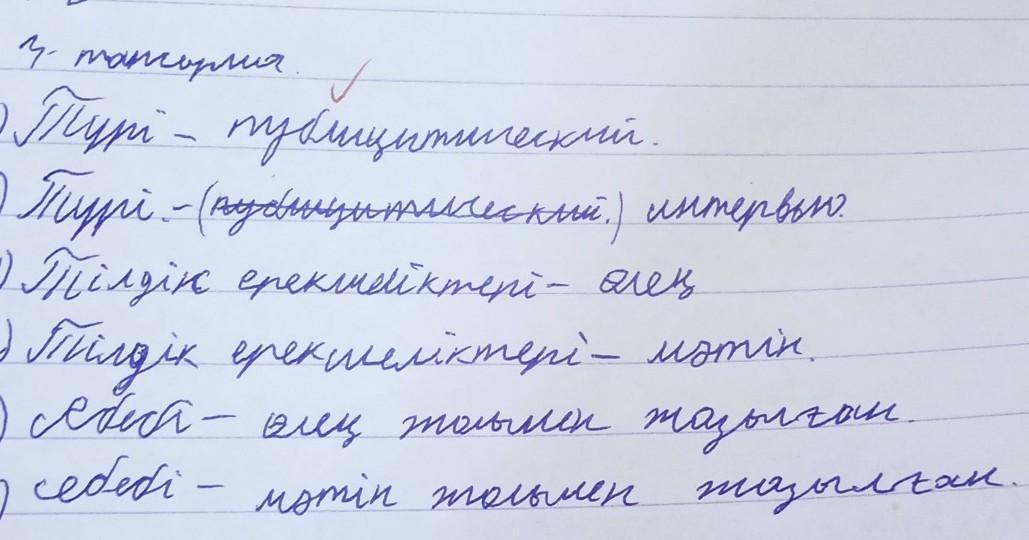 3- тапсырма.
) Түрі - публицитический.
) Түрі - (публицитический.) интервью.
) Тілдік ерекшеліктері - өлең
) Тілдік ерекшеліктері - мәтін.
) Себебі - өлең жолымен жазылған.
) Себебі - мәтін жолымен жазылған.